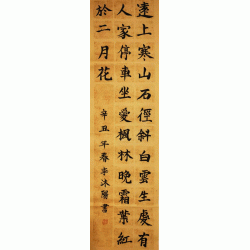 遠上寒山石徑斜白雲生處有
人家停車坐愛楓林晚霜葉紅
於二月花
辛丑年春李沐陽書